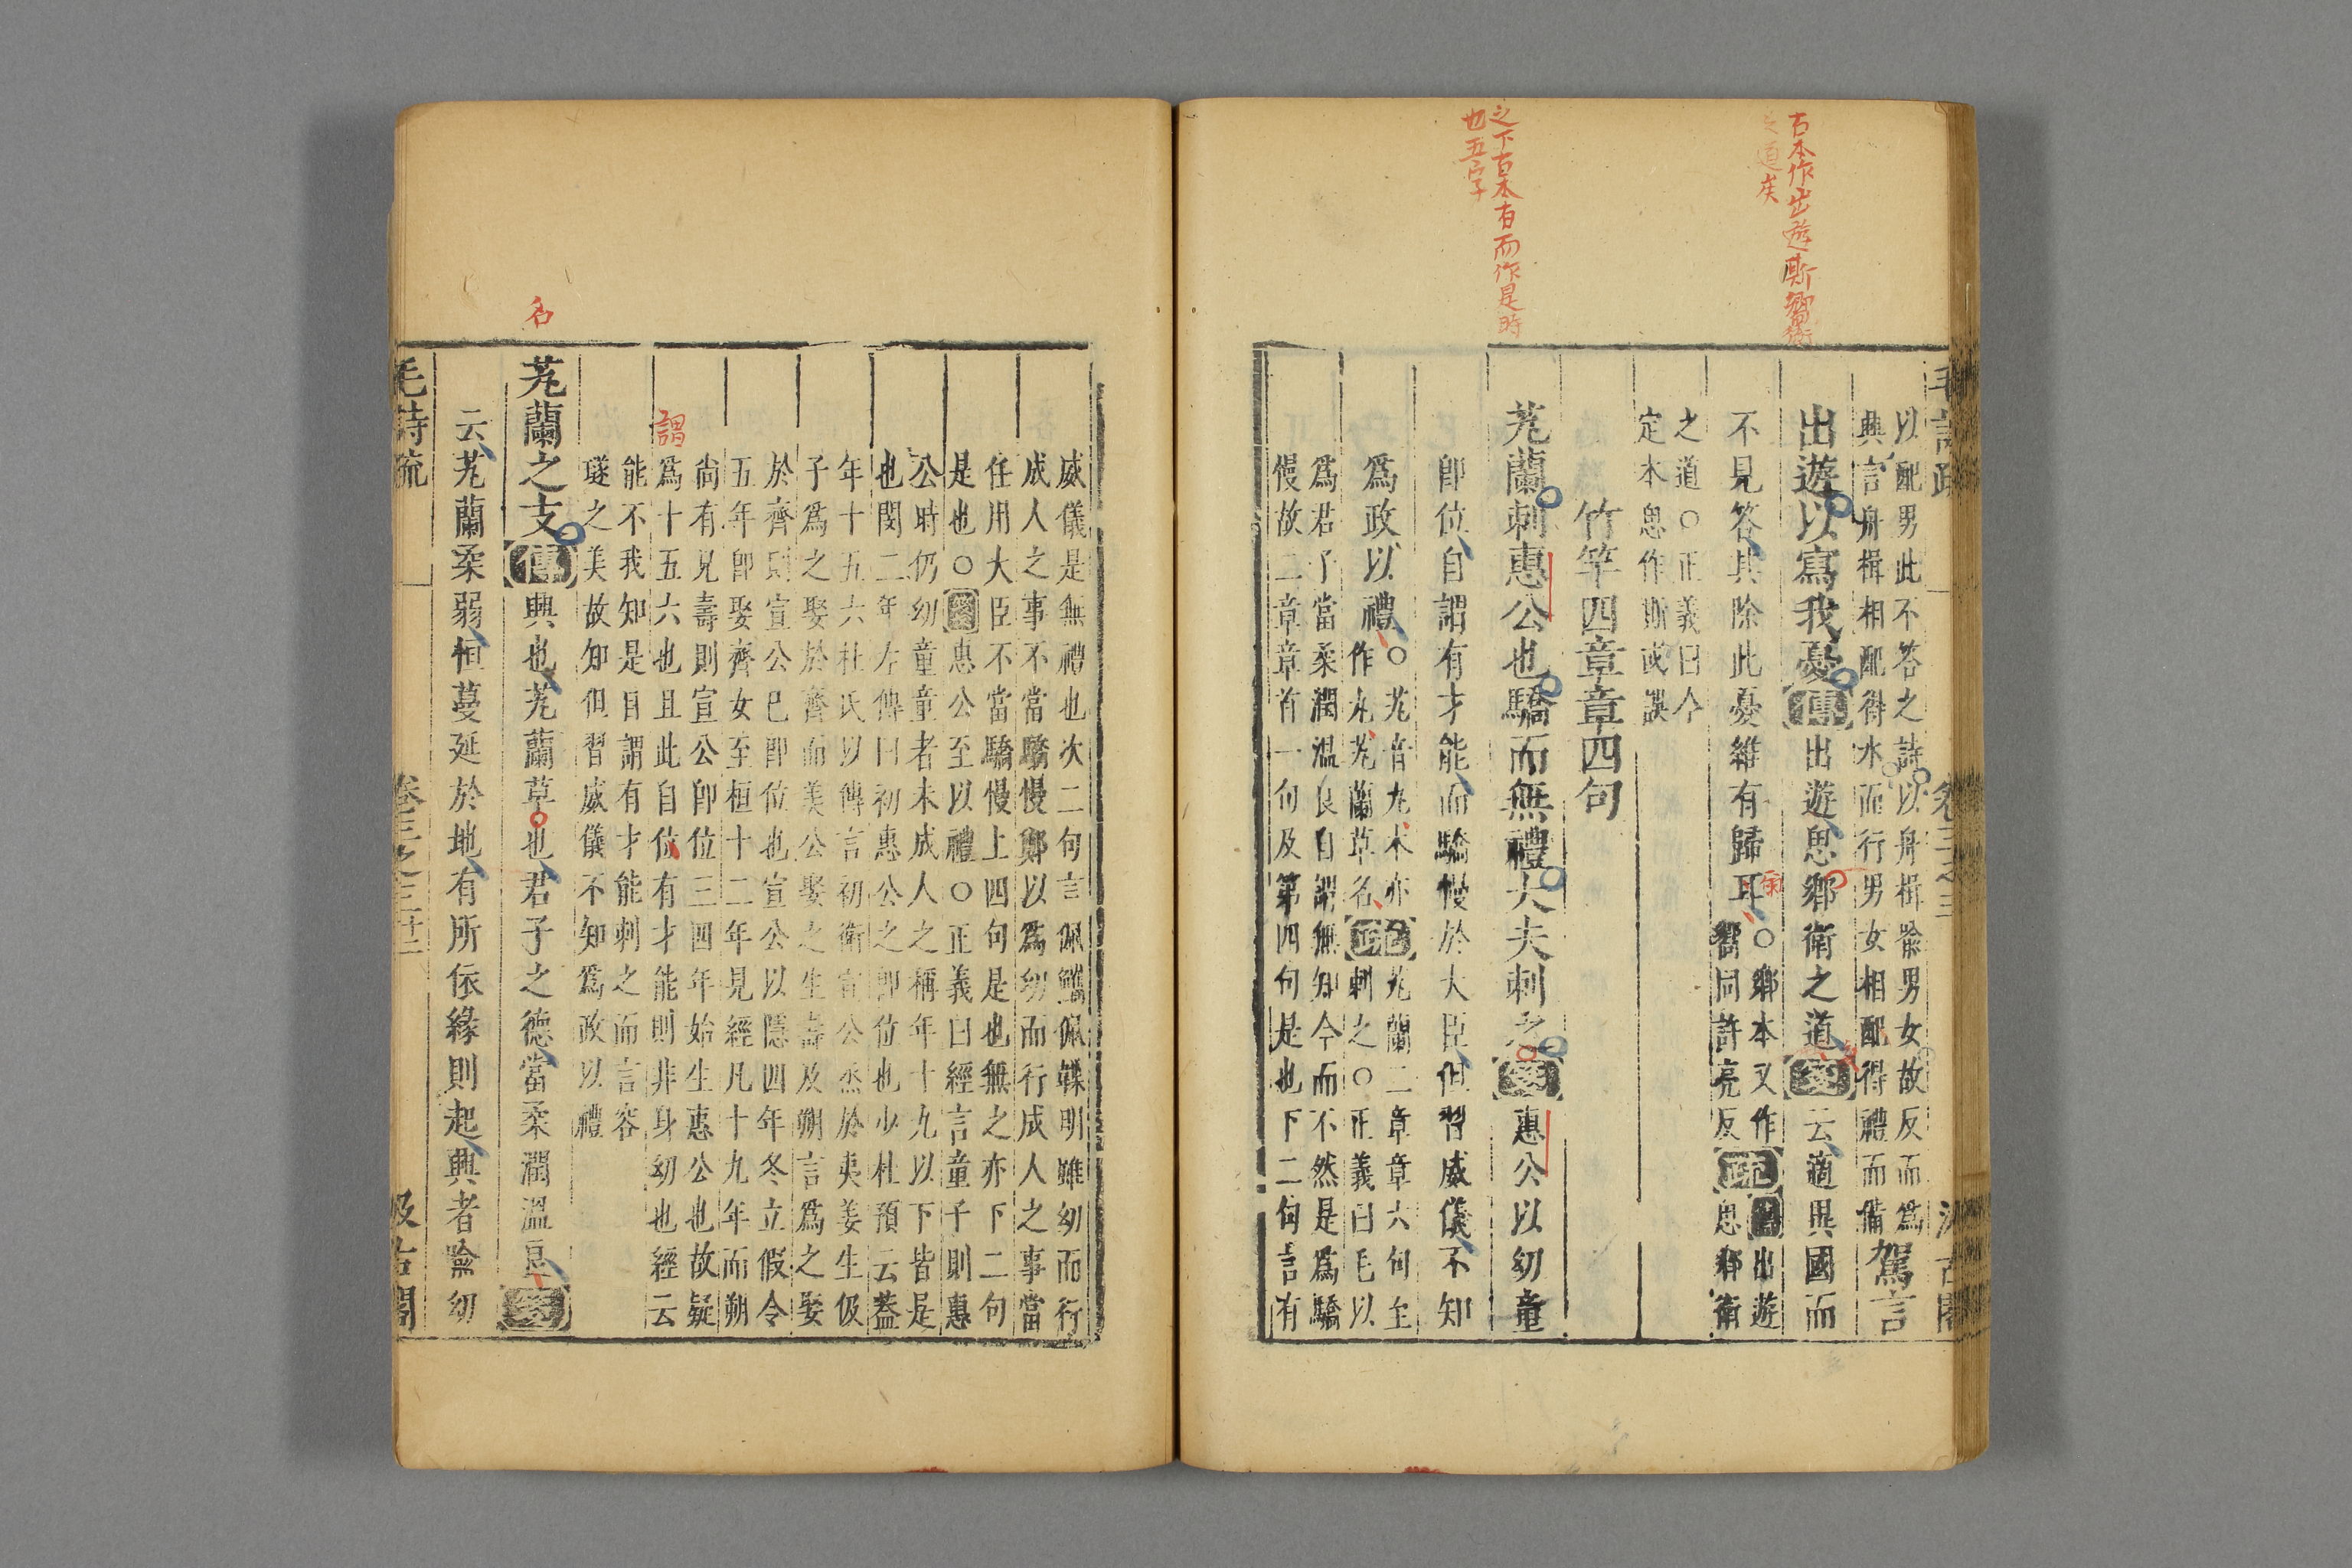 古本作出遊斯嚮衛
之道矣
之下古本有而作是時
也五字
毛詩疏
卷三之三
汲古閣
以配男此不答之詩以舟楫喻男女故反而爲
興言舟楫相配得水而行男女相配得禮而備
駕言
出遊以寫我憂傳出遊思鄉衛之道箋云適異國而
不見答其除此憂維有歸耳
○鄉本又作嚮出遊
嚮同許亮反疏思鄉衛
之道○正義曰今
定本思作斯或誤
竹竿四章章四句
芄蘭刺惠公也驕而無禮大夫刺之箋惠公以幼童
卽位自謂有才能而驕慢於大臣但習威儀不知
爲政以禮
○芄音丸本亦
作丸芄蘭草名疏
芄蘭二章章六句至
刺之○正義曰毛以
爲君子當柔潤温良自謂無知今而不然是爲驕
慢故二章章首一句及第四句是也下二句言有
威儀是無禮也次二句言佩觿佩韘明雖幼而行
成人之事不當驕慢鄭以爲幼而行成人之事當
任用大臣不當驕慢上四句是也無之亦下二句
是也○箋惠公至以禮○正義曰經言童子則惠
公時仍幼童童者未成人之稱年十九以下皆是
也閔二年左傳曰初惠公之卽位也少杜預云蓋
年十五六杜氏以傳言初衛宣公烝於夷姜生伋
子爲之娶於齊而美公娶之生壽及朔言爲之娶
於齊則宣公已卽位也宣公以隱四年冬立假令
五年卽娶齊女至桓十二年見經凡十九年而朔
尚有兄壽則宣公卽位三四年始生惠公也故疑
爲十五六也且此自位有才能則非身幼也經云
謂
能不我知是自謂有才能刺之而言容
璲之美故知但習威儀不知爲政以禮
名
芄蘭之支傳興也芄蘭草也君子之德當柔潤温良箋
云芄蘭柔弱恒蔓延於地有所依緣則起興者喻幼
毛詩疏
卷三之三
十二
汲古閣